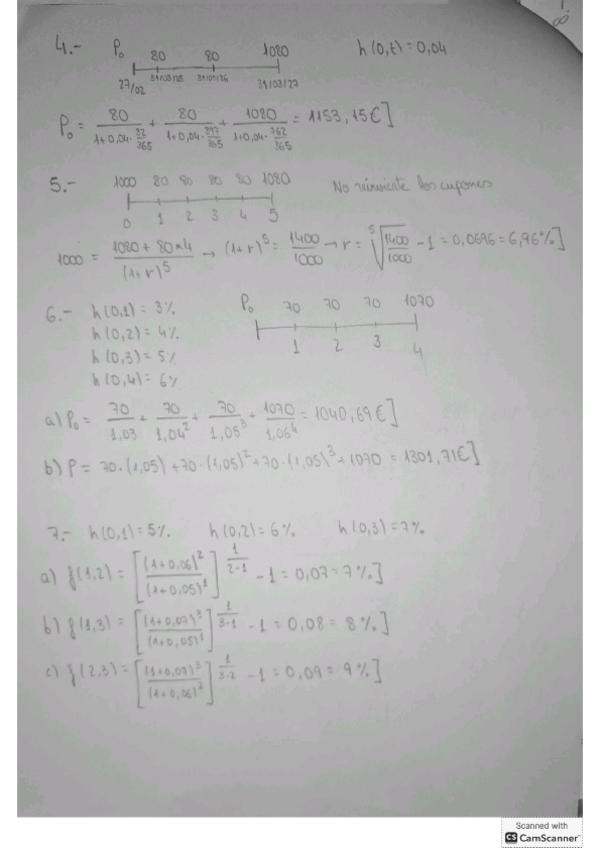 4.- P₀ 80 80 1080 h(0,t) = 0,04
27/02 31/03/25 31/03/26 31/03/27
P₀ = 80/(1+0,04·32/365) + 80/(1+0,04·397/365) + 1080/(1+0,04·762/365) = 1153,15€]
5.- 1000 80 80 80 80 1080 No reinvierte los cupones
0 1 2 3 4 5
1000 = (1080 + 80*4)/(1+r)⁵ → (1+r)⁵ = 1400/1000 → r = ⁵√(1400/1000) - 1 = 0,0696 = 6,96%]
6.- h(0,1) = 3% P₀ 70 70 70 1070
h(0,2) = 4%
h(0,3) = 5% 1 2 3 4
h(0,4) = 6%
a) P₀ = 70/1,03 + 70/1,04² + 70/1,05³ + 1070/1,06⁴ = 1040,69€]
b) P = 70·(1,05) + 70·(1,05)² + 70·(1,05)³ + 1070 = 1301,71€]
7.- h(0,1) = 5% h(0,2) = 6% h(0,3) = 7%
a) f(1,2) = [(1+0,06)²/(1+0,05)¹]^(1/(2-1)) - 1 = 0,07 = 7%]
b) f(1,3) = [(1+0,07)³/(1+0,05)¹]^(1/(3-1)) - 1 = 0,08 = 8%]
c) f(2,3) = [(1+0,07)³/(1+0,06)²]^(1/(3-2)) - 1 = 0,09 = 9%]
Scanned with
CS CamScanner